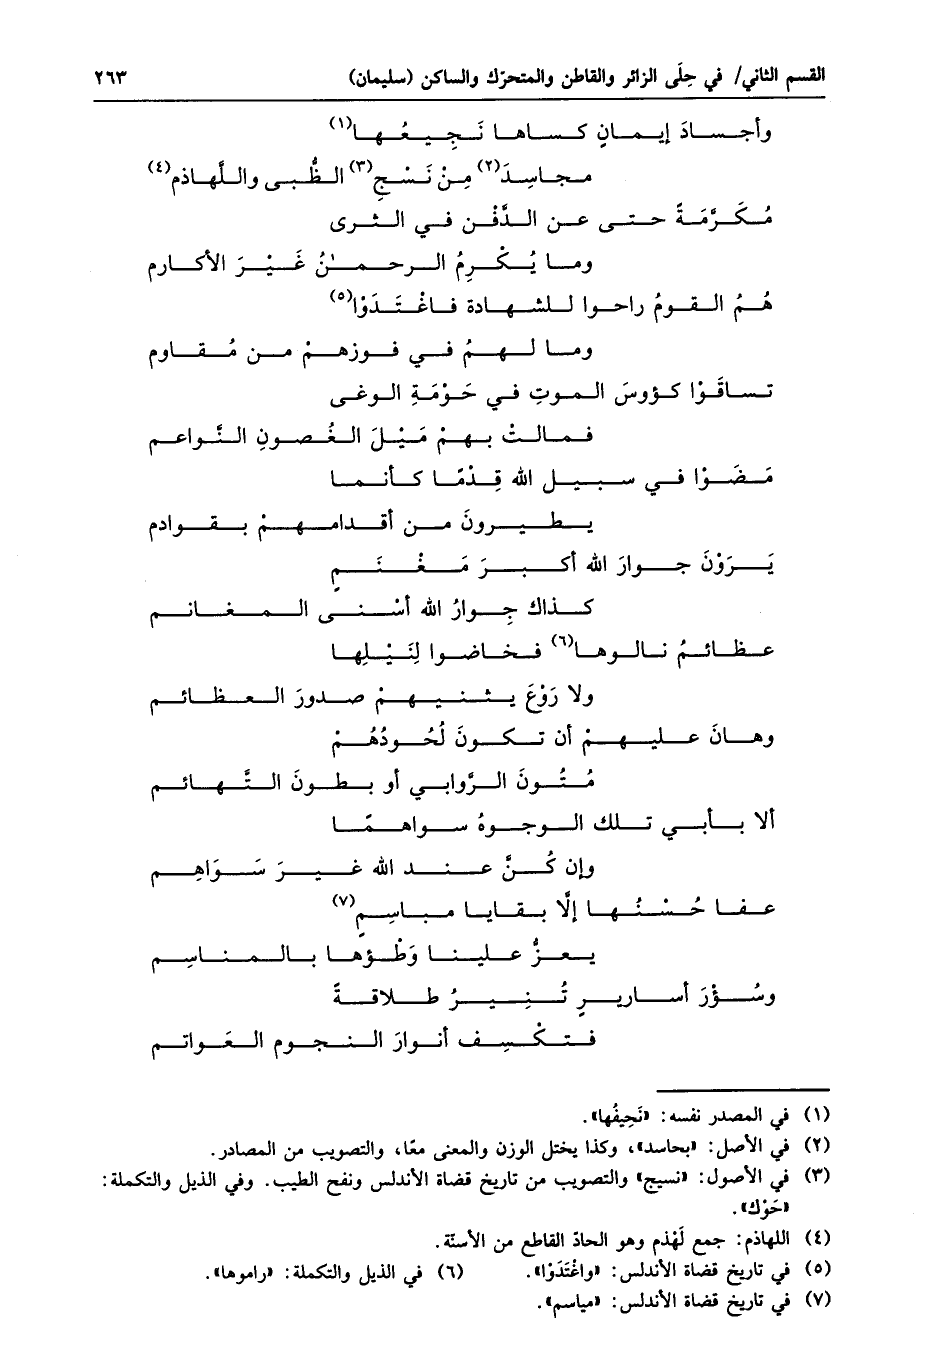 القسم الثاني/ في حِلَى الزائر والقاطن والمتحرّك والساكن (سليمان) ٢٦٣
وأجسادَ إيمانٍ كساها نَجِيعُها(١)
مجاسِدَ(٢) مِنْ نَسْجِ(٣) الظُّبى واللَّهاذمِ(٤)
مُكَرَّمَةً حتى عن الدَّفْنِ في الثرى
وما يُكْرِمُ الرحمٰنُ غَيْرَ الأكارم
هُمُ القومُ راحوا للشهادة فاغْتَدَوْا(٥)
وما لهمُ في فوزهمْ من مُقاوم
تساقَوْا كؤوسَ الموتِ في حَوْمَةِ الوغى
فمالتْ بهمْ مَيْلَ الغُصونِ النَّواعم
مَضَوْا في سبيل الله قِدْمًا كأنما
يطيرونَ من أقدامهمْ بقوادم
يَرَوْنَ جوارَ الله أكبرَ مَغْنَمٍ
كذاك جِوارُ الله أسْنى المغانم
عظائمُ نالوها(٦) فخاضوا لِنَيْلِها
ولا رَوْعَ يثنيهمْ صدورَ العظائم
وهانَ عليهمْ أن تكونَ لُحُودُهُمْ
مُتُونَ الرَّوابي أو بطونَ التَّهائم
ألا بأبي تلك الوجوهُ سواهمًا
وإن كُنَّ عند الله غيرَ سَوَاهِم
عفا حُسْنُها إلَّا بقايا مباسِمٍ(٧)
يعزُّ علينا وَطْؤها بالمناسِم
وسُؤْرَ أساريرٍ تُنِيرُ طلاقةً
فتكْسِف أنوارَ النجوم العَواتم
(١) في المصدر نفسه: «نَجِيفُها».
(٢) في الأصل: «بحاسد»، وكذا يختل الوزن والمعنى معًا، والتصويب من المصادر.
(٣) في الأصول: «نسيج» والتصويب من تاريخ قضاة الأندلس ونفح الطيب. وفي الذيل والتكملة:
«حَوْك».
(٤) اللهاذم: جمع لَهْذم وهو الحادّ القاطع من الأسنّة.
(٥) في تاريخ قضاة الأندلس: «واغْتَدَوْا». (٦) في الذيل والتكملة: «راموها».
(٧) في تاريخ قضاة الأندلس: «مياسم».